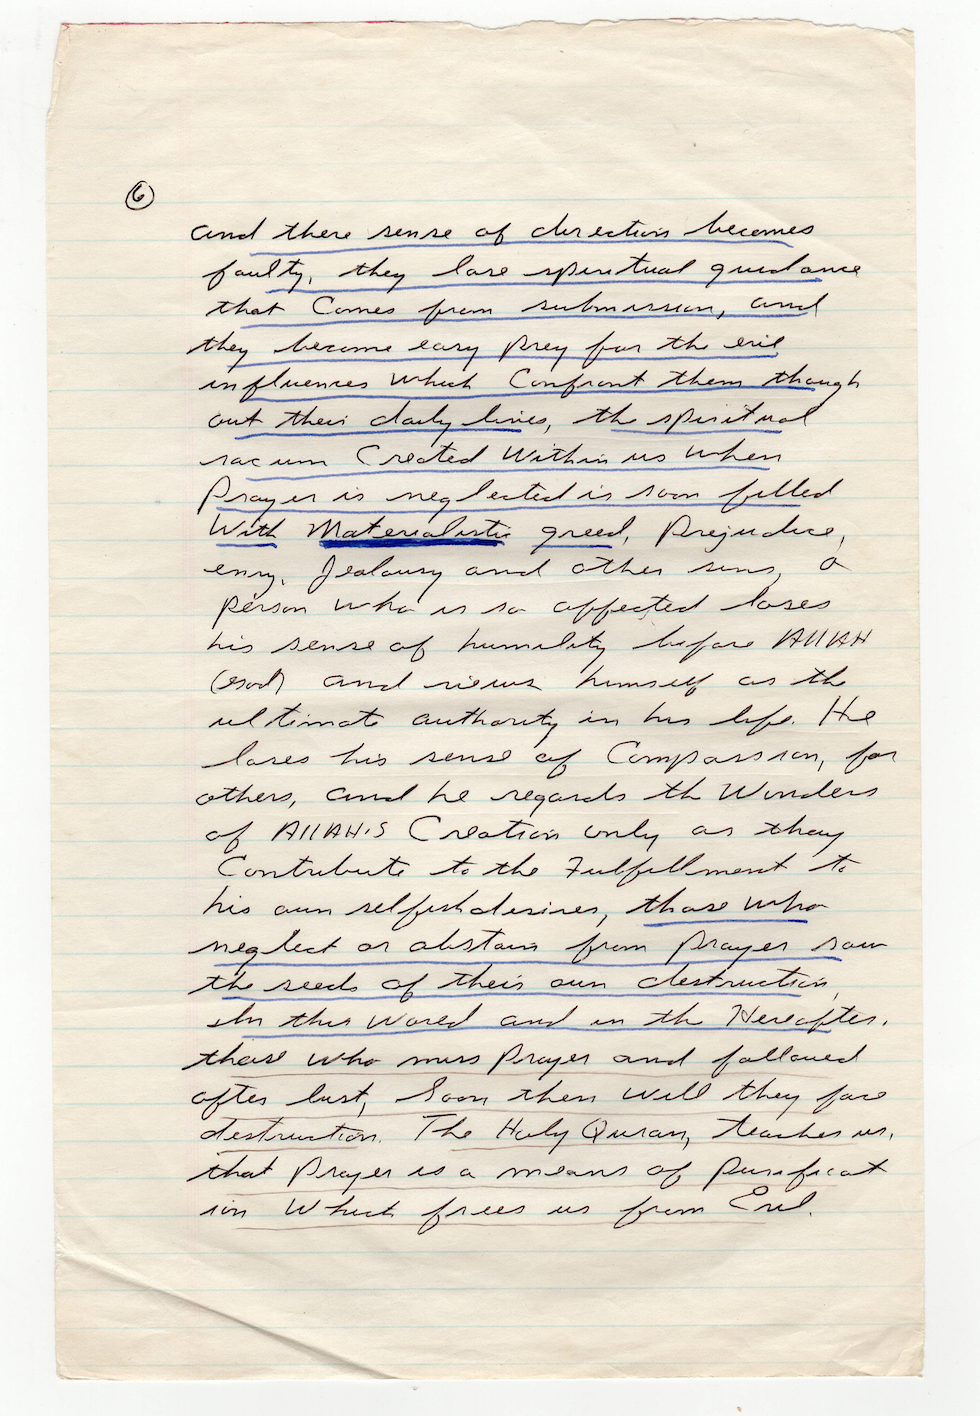 6
and there sense of direction becomes
faulty, they lose spiritual guidance
that Comes from submission, and
they become easy prey for the evil
influences which Confront them though
out their daily lives, the spiritual
vacum Created Within us when
Prayer is neglected is soon filled
With Materialistic greed, Prejudice,
envy, Jealousy and other sins, a
person who is so affected loses
his sense of humility before AllAH
(God) and views himself as the
ultimate authority in his life. He
loses his sense of Compassion, for
others, and he regards th Wonders
of AllAH'S Creation only as thay
Contribute to the Fulfillment to
his own selfish desires, those who
neglect or abstain from prayer sow
the seeds of their own destruction,
In this World and in the Hereafter.
those who miss Prayer and followed
after lust, Soon then Will they face
destruction. The Holy Quran, teaches us,
that Prayer is a means of purificat
ion Which frees us from Evil.